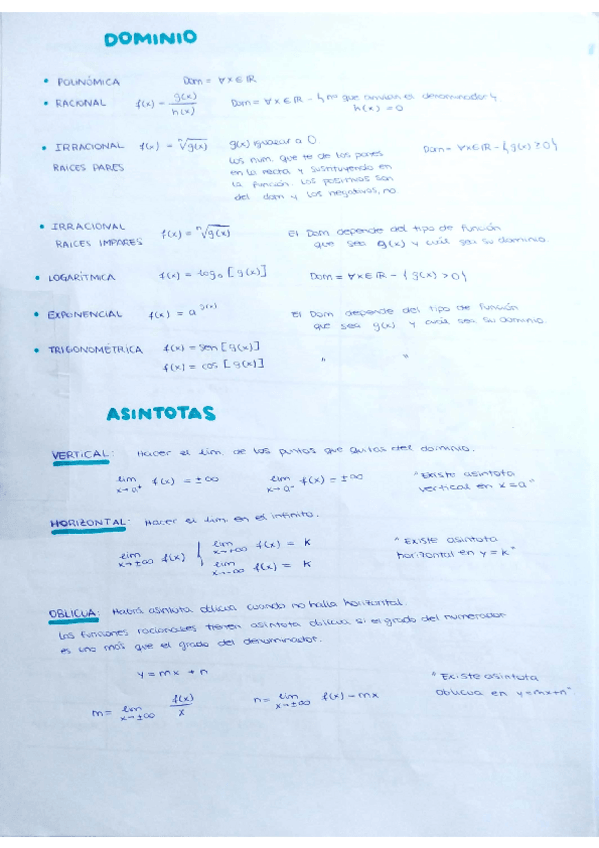 DOMINIO
• POLINÓMICA Dom = ∀x∈ℝ
• RACIONAL f(x) = g(x)/h(x) Dom = ∀x∈ℝ - { no que anulan el denominador }
h(x) = 0
• IRRACIONAL f(x) = ⁿ√g(x) g(x) igualar a 0 Dom = ∀x∈ℝ - { g(x) ≥ 0 }
RAICES PARES Los num. que te de los pones
en la recta y sustituyendo en
la función. Los positivos son
del dom y los negativos, no.
• IRRACIONAL
RAICES IMPARES f(x) = ⁿ√g(x) El Dom depende del tipo de función
que sea g(x) y cuál sea su dominio.
• LOGARÍTMICA f(x) = logₐ [g(x)] Dom = ∀x∈ℝ - { g(x) > 0 }
• EXPONENCIAL f(x) = a^g(x) El Dom depende del tipo de función
que sea g(x) y cuál sea su dominio.
• TRIGONOMÉTRICA f(x) = sen [g(x)] " "
f(x) = cos [g(x)]
ASINTOTAS
VERTICAL: Hacer el lim. de los puntos que quitas del dominio.
lim x→a⁺ f(x) = ±∞ lim x→a⁻ f(x) = ±∞ "Existe asintota
vertical en x=a"
HORIZONTAL: Hacer el lim. en el infinito.
lim x→±∞ f(x) { lim x→+∞ f(x) = K "Existe asintota
lim x→-∞ f(x) = K horizontal en y=k"
OBLICUA: Habrá asintota oblicua cuando no halla horizontal.
Las funciones racionales tienen asintota oblicua si el grado del numerador
es uno más que el grado del denominador.
y = mx + n "Existe asintota
oblicua en y=mx+n"
m = lim x→±∞ f(x)/x n = lim x→±∞ f(x) - mx